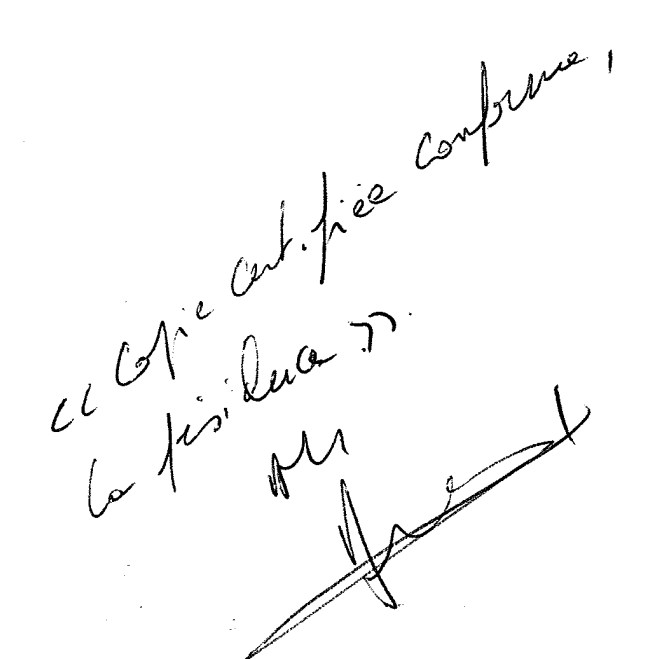 « Copie certifiée conforme,
La Présidence ».